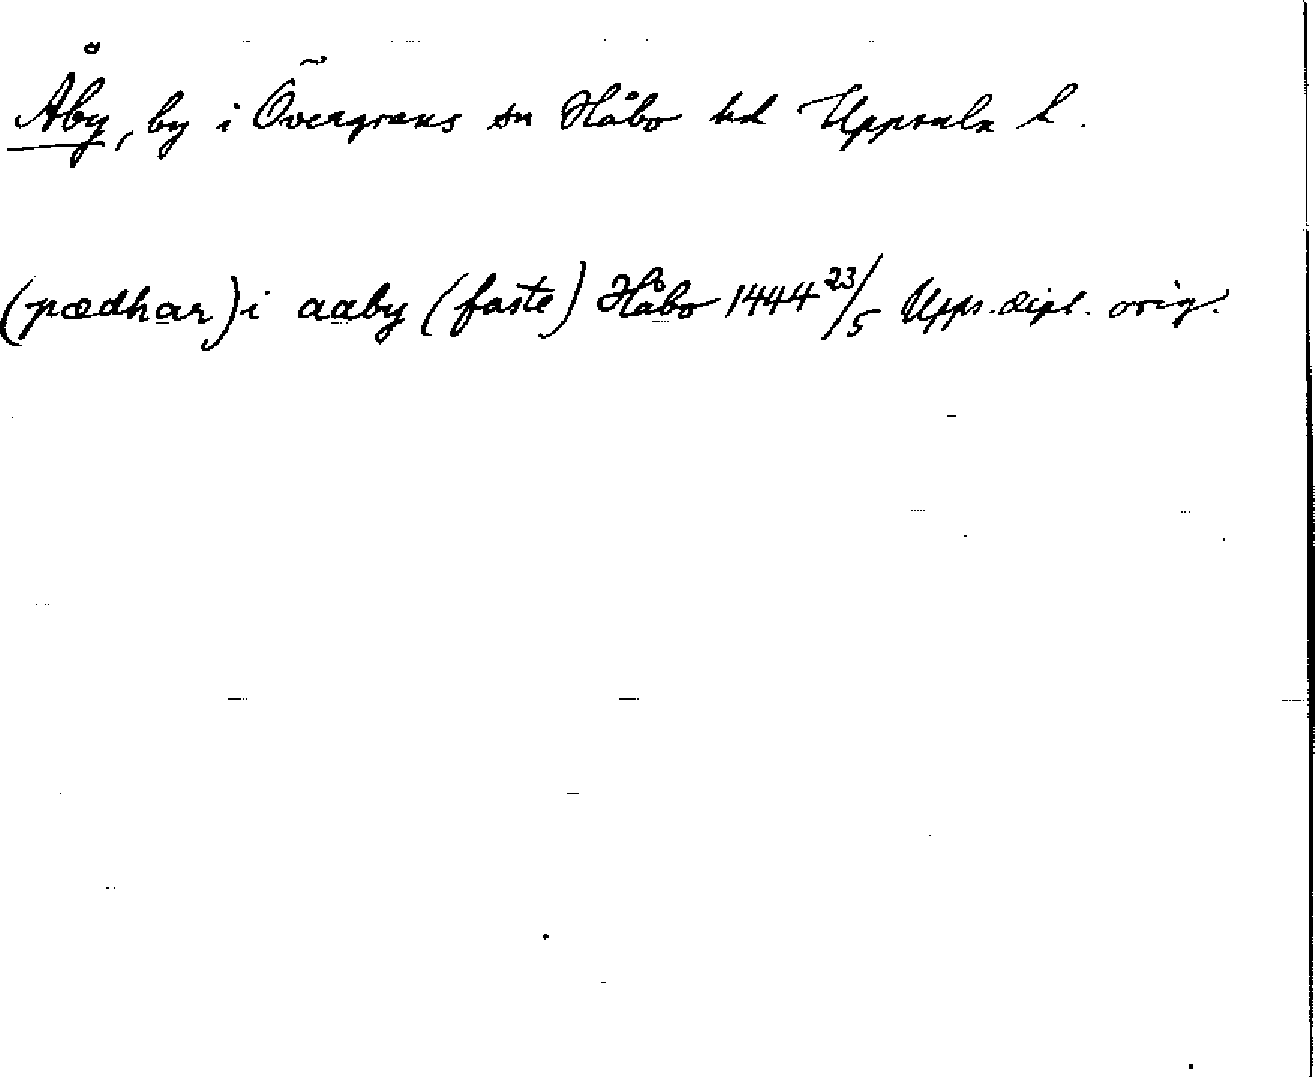 Åby, by i Övergrans sn Håbo hd Uppsala l.
(pædhar) i aaby (faste) Håbo 1444 23/5 Upps. dipl. orig.